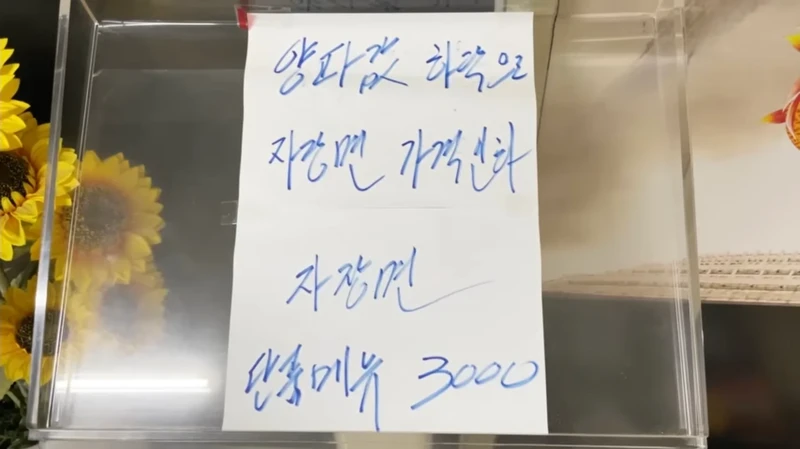 양파값 하락으로
자장면 가격인하
자장면
단품메뉴 3000